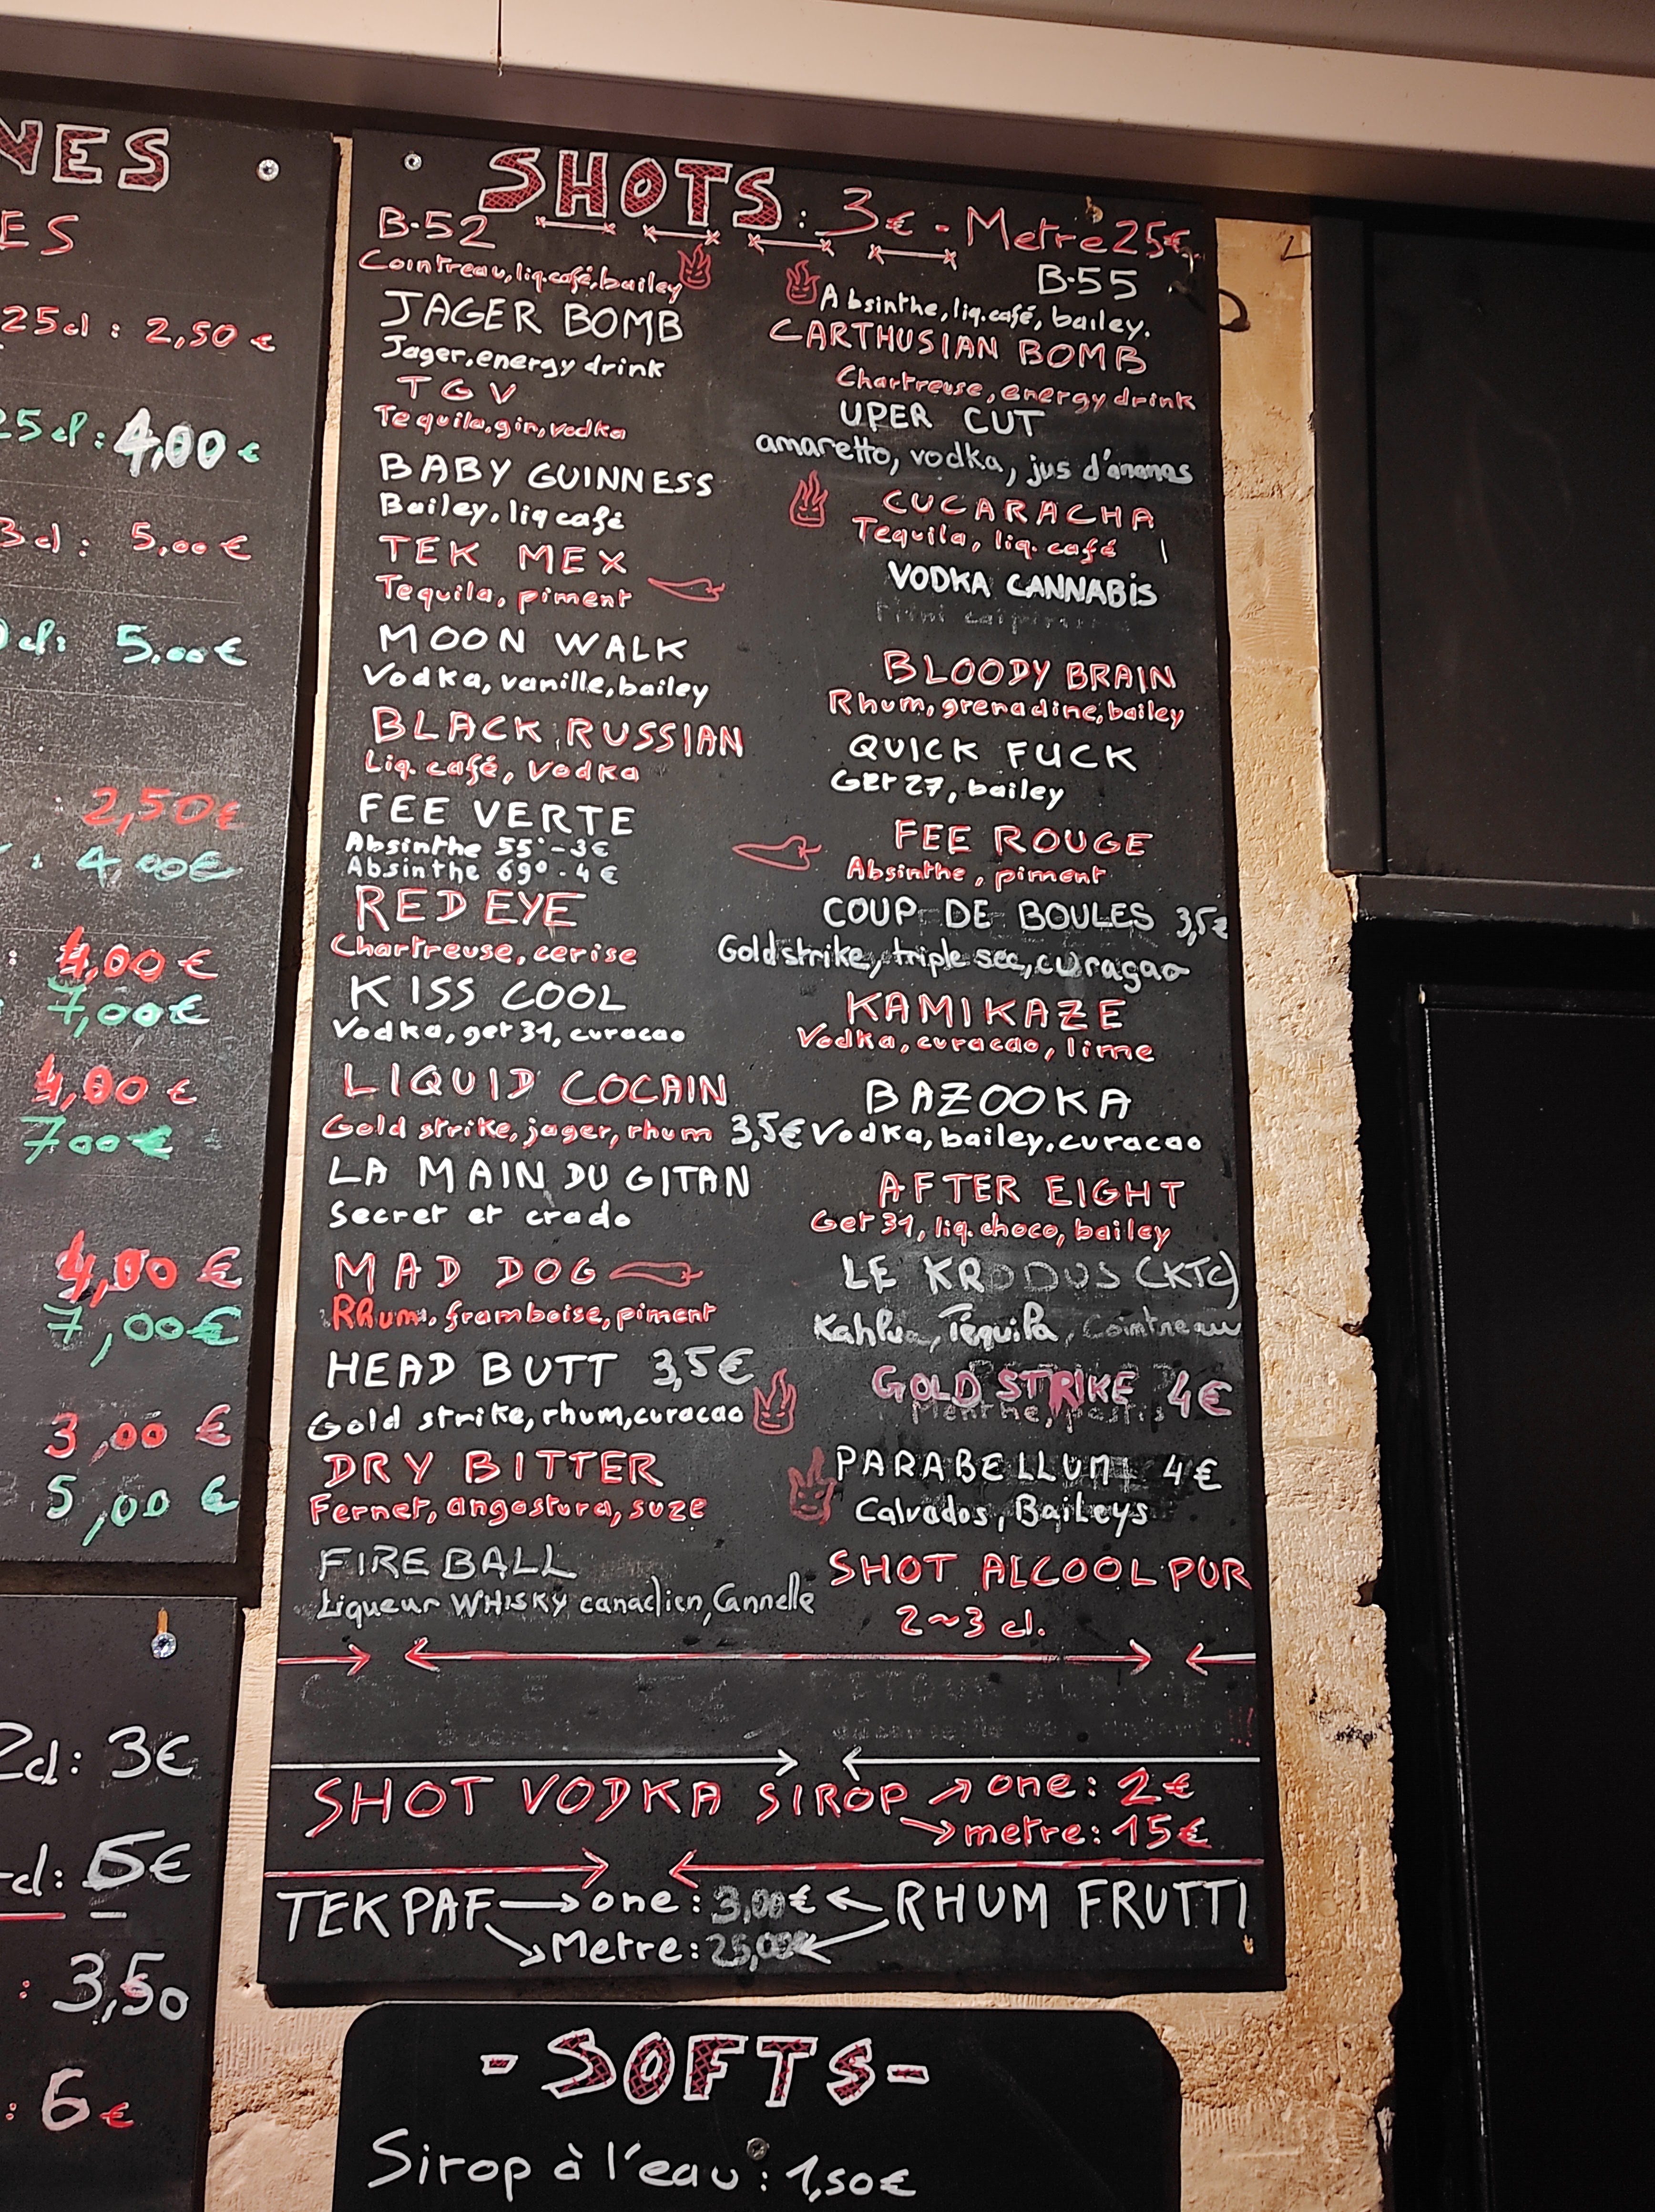 NES
ES
25cl : 2,50 €
25cl: 4,00 €
3cl: 5,00 €
cl: 5,00 €
: 2,50€
: 4,00€
: 4,00 €
: 7,00€
4,00 €
7,00€
4,00 €
7,00€
3,00 €
5,00 €
2cl: 3€
cl: 5€
: 3,50
: 6€
SHOTS : 3€ - Metre 25€
B-52
Cointreau, liq.café, bailey
JAGER BOMB
Jager, energy drink
TGV
Tequila, gin, vodka
BABY GUINNESS
Bailey, liq café
TEK MEX
Tequila, piment
MOON WALK
Vodka, vanille, bailey
BLACK RUSSIAN
Liq. café, Vodka
FEE VERTE
Absinthe 55° - 3€
Absinthe 69° - 4€
RED EYE
Chartreuse, cerise
KISS COOL
Vodka, get 31, curacao
LIQUID COCAIN
Gold strike, jager, rhum 3,5€
LA MAIN DU GITAN
Secret et crado
MAD DOG
Rhum, framboise, piment
HEAD BUTT 3,5€
Gold strike, rhum, curacao
DRY BITTER
Fernet, angostura, suze
FIREBALL
Liqueur WHISKY canadien, Cannelle
B-55
Absinthe, liq.café, bailey.
CARTHUSIAN BOMB
Chartreuse, energy drink
UPER CUT
amaretto, vodka, jus d'ananas
CUCARACHA
Tequila, liq. café
VODKA CANNABIS
BLOODY BRAIN
Rhum, grenadine, bailey
QUICK FUCK
Get 27, bailey
FEE ROUGE
Absinthe, piment
COUP DE BOULES 3,5€
Goldstrike, triple sec, curaçao
KAMIKAZE
Vodka, curacao, lime
BAZOOKA
Vodka, bailey, curacao
AFTER EIGHT
Get 31, liq. choco, bailey
LE KRODUS (KTC)
Kahlua, Tequila, Cointreau
GOLD STRIKE 4€
Menthe, pastis
PARABELLUM 4€
Calvados, Baileys
SHOT ALCOOL PUR
2~3 cl.
SHOT VODKA SIROP → one : 2€
→ metre : 15€
TEK PAF → one : 3,00€ ← RHUM FRUTTI
→ Metre : 25,00€ ←
- SOFTS -
Sirop à l'eau : 1,50€